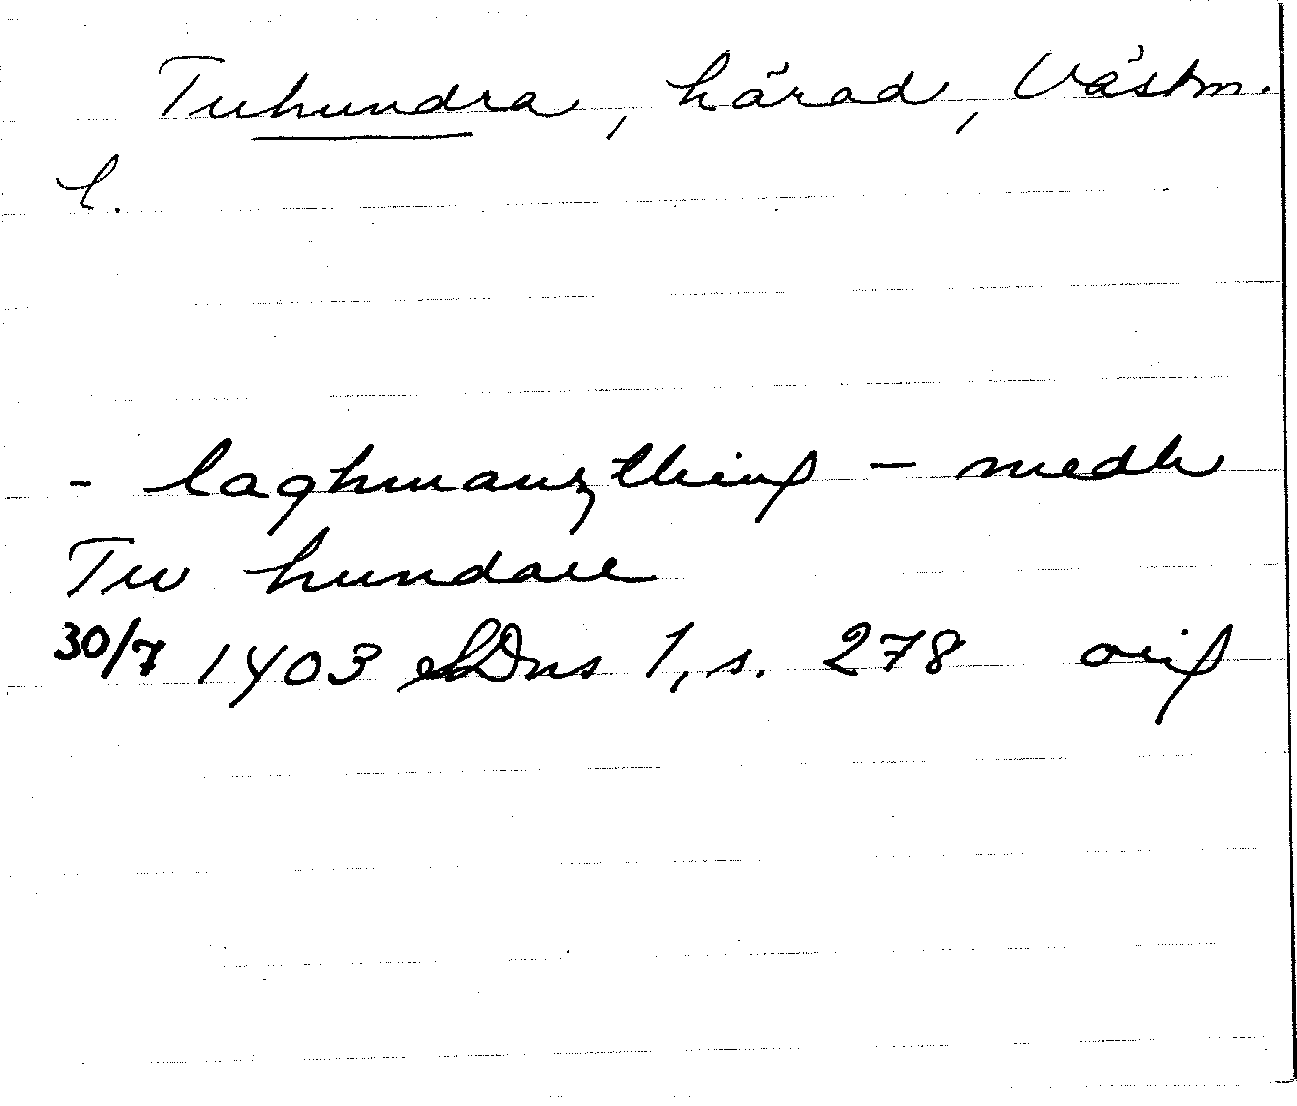 Tuhundra, härad, Västm.
l.
- laghmanzthing - medh
Tw hundare
30/7 1403 SDns 1, s. 278 orig